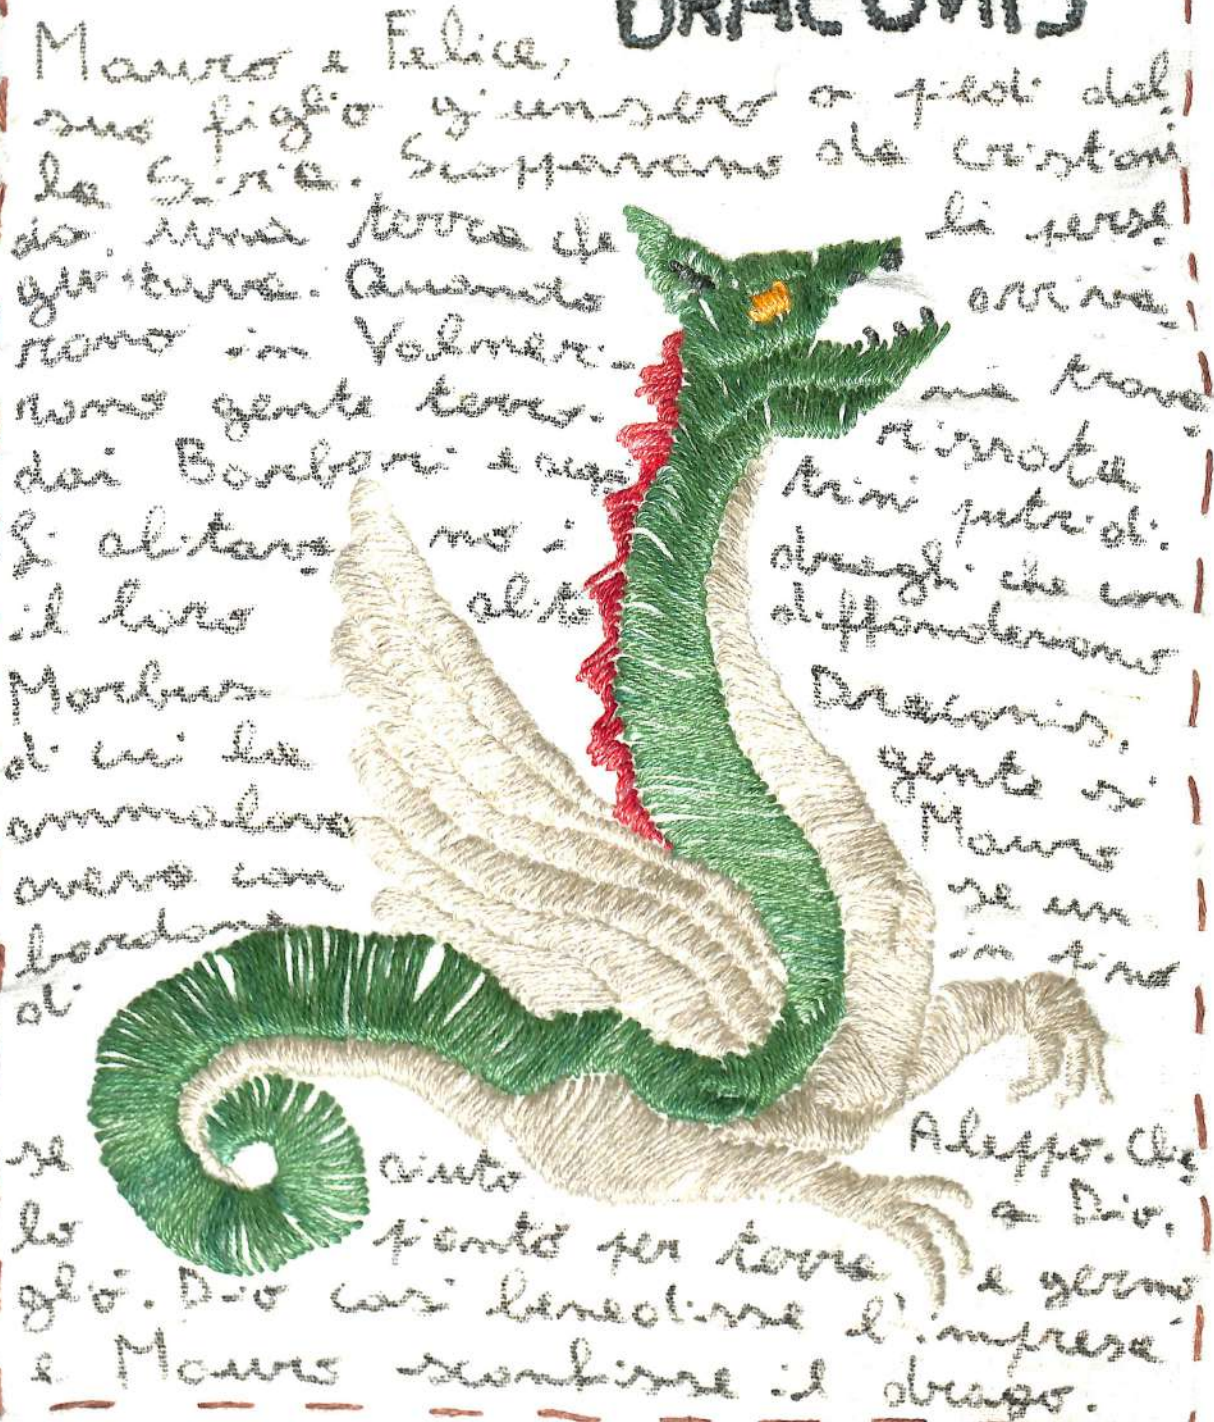 DRACONIS
Mauro e Felice,
suo figlio giunsero a piedi dal
la Siria. Scappavano da
da, una terra che li perse
guitava. Quando arriva
rono in Valneri- na trova
rono gente terro- rizzata
dai Barbari e acqui trini putridi.
Lì abitava no i draghi che con
il loro alito diffondevano
Morbus Draconis,
di cui la gente si
ammalava Mauro
aveva con se un
bordone in pino
di Aleppo. Chie
se aiuto a Dio,
lo piantò per terra e germo
gliò. Dio così benedisse l'impresa
e Mauro sconfisse il drago.